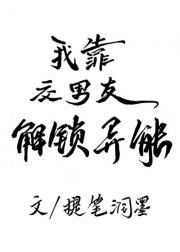 我靠
交男友
解锁异能
文/提笔润墨